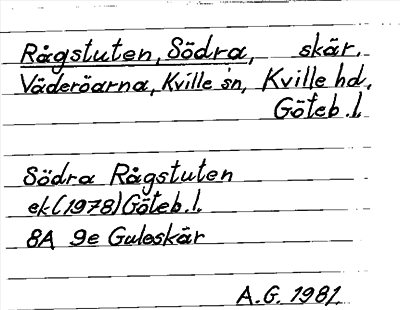 Rågstuten, Södra, skär.
Väderöarna, Kville sn, Kville hd.
Göteb. l.
Södra Rågstuten
ek (1978) Göteb. l.
8A 9e Guleskär
A.G. 1981